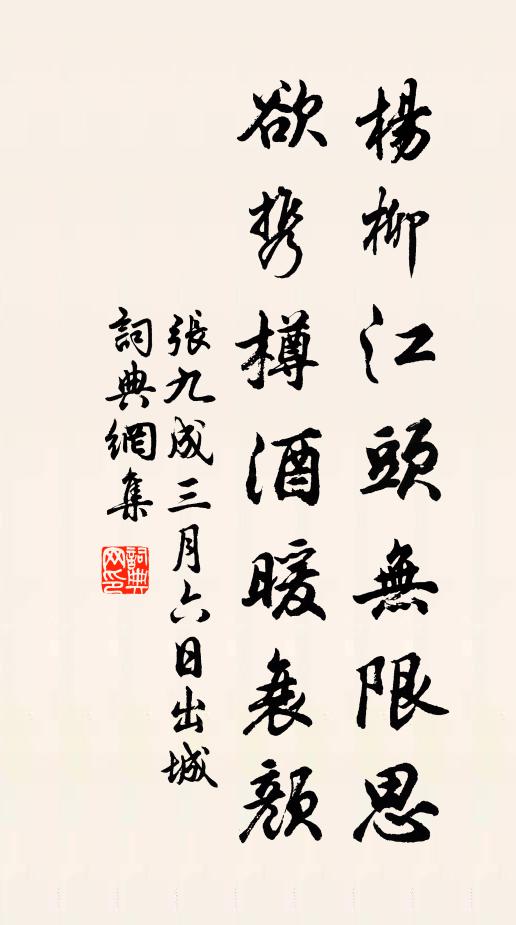 楊柳江頭無限思
欲携樽酒暖衰顏
張九成三月六日出城
詞典網集
詞典網印